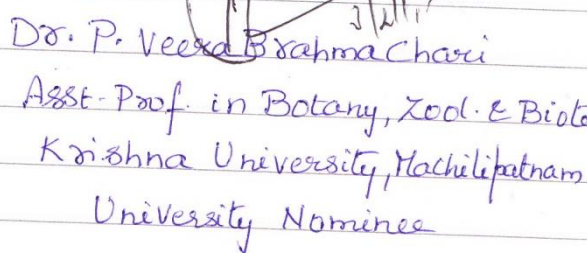 Dr. P. Veera Brahma Chari
Asst. Prof. in Botany, Zool. & Biote
Krishna University, Machilipatnam
University Nominee